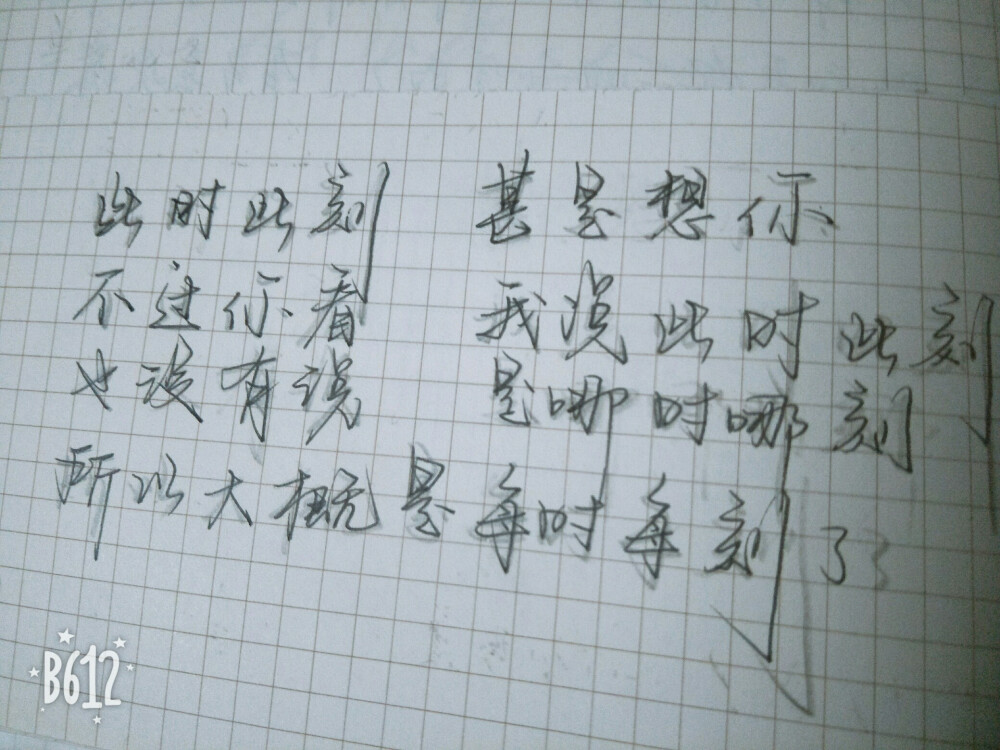 此时此刻 甚是想你
不过你看 我说此时此刻
也没有说 是哪时哪刻
所以大概是每时每刻了
B612